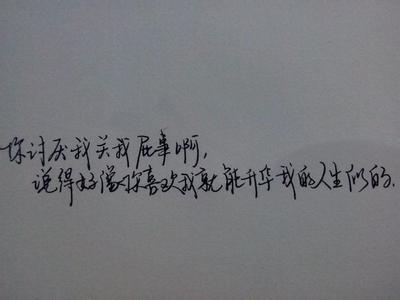 你讨厌我关我屁事啊,
说得好像你喜欢我就能升华我的人生似的.